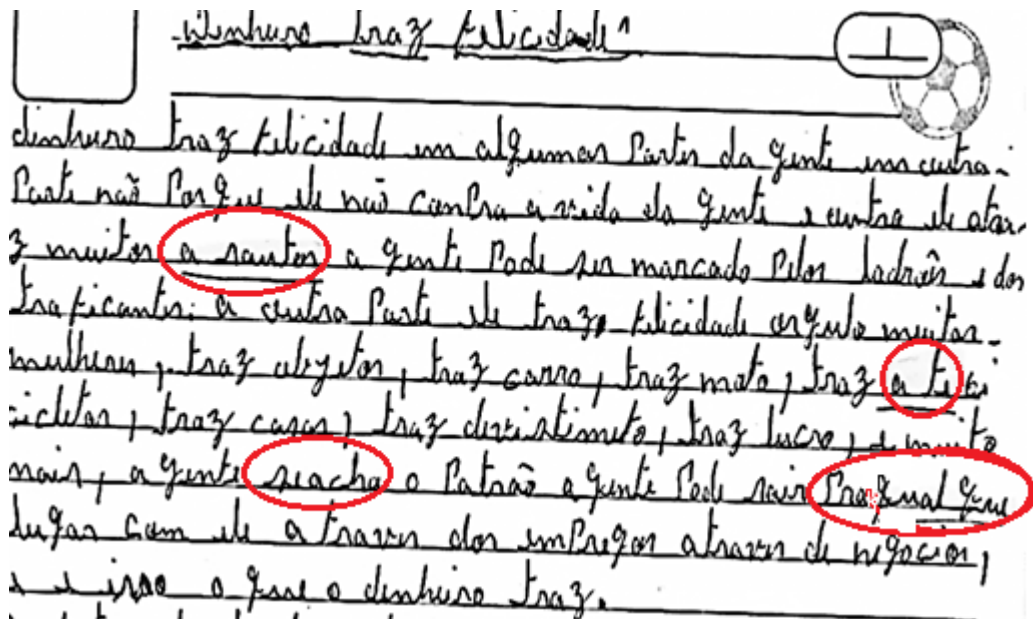 dinheiro traz felicidade"
1
dinheiro traz felicidade em algumas Partes da gente em outra-
Parte não Porque ele não compra a vida da gente e outra ele atra-
z muitos a sautos a gente Pode ser marcado Pelos ladroês e dos
traficantes: a outra Parte ele traz felicidade orgulo muitas
mulheres, traz objetos, traz carro, traz moto, traz a te
cicletas, traz casas, traz divistimeto, traz lucro, e muito
mais, a gente seacha o Patraõ a gente Pode sair Pra qual que
lugar com ele a traves dos empregos atraves de negocios,
e isso o que o dinheiro traz.